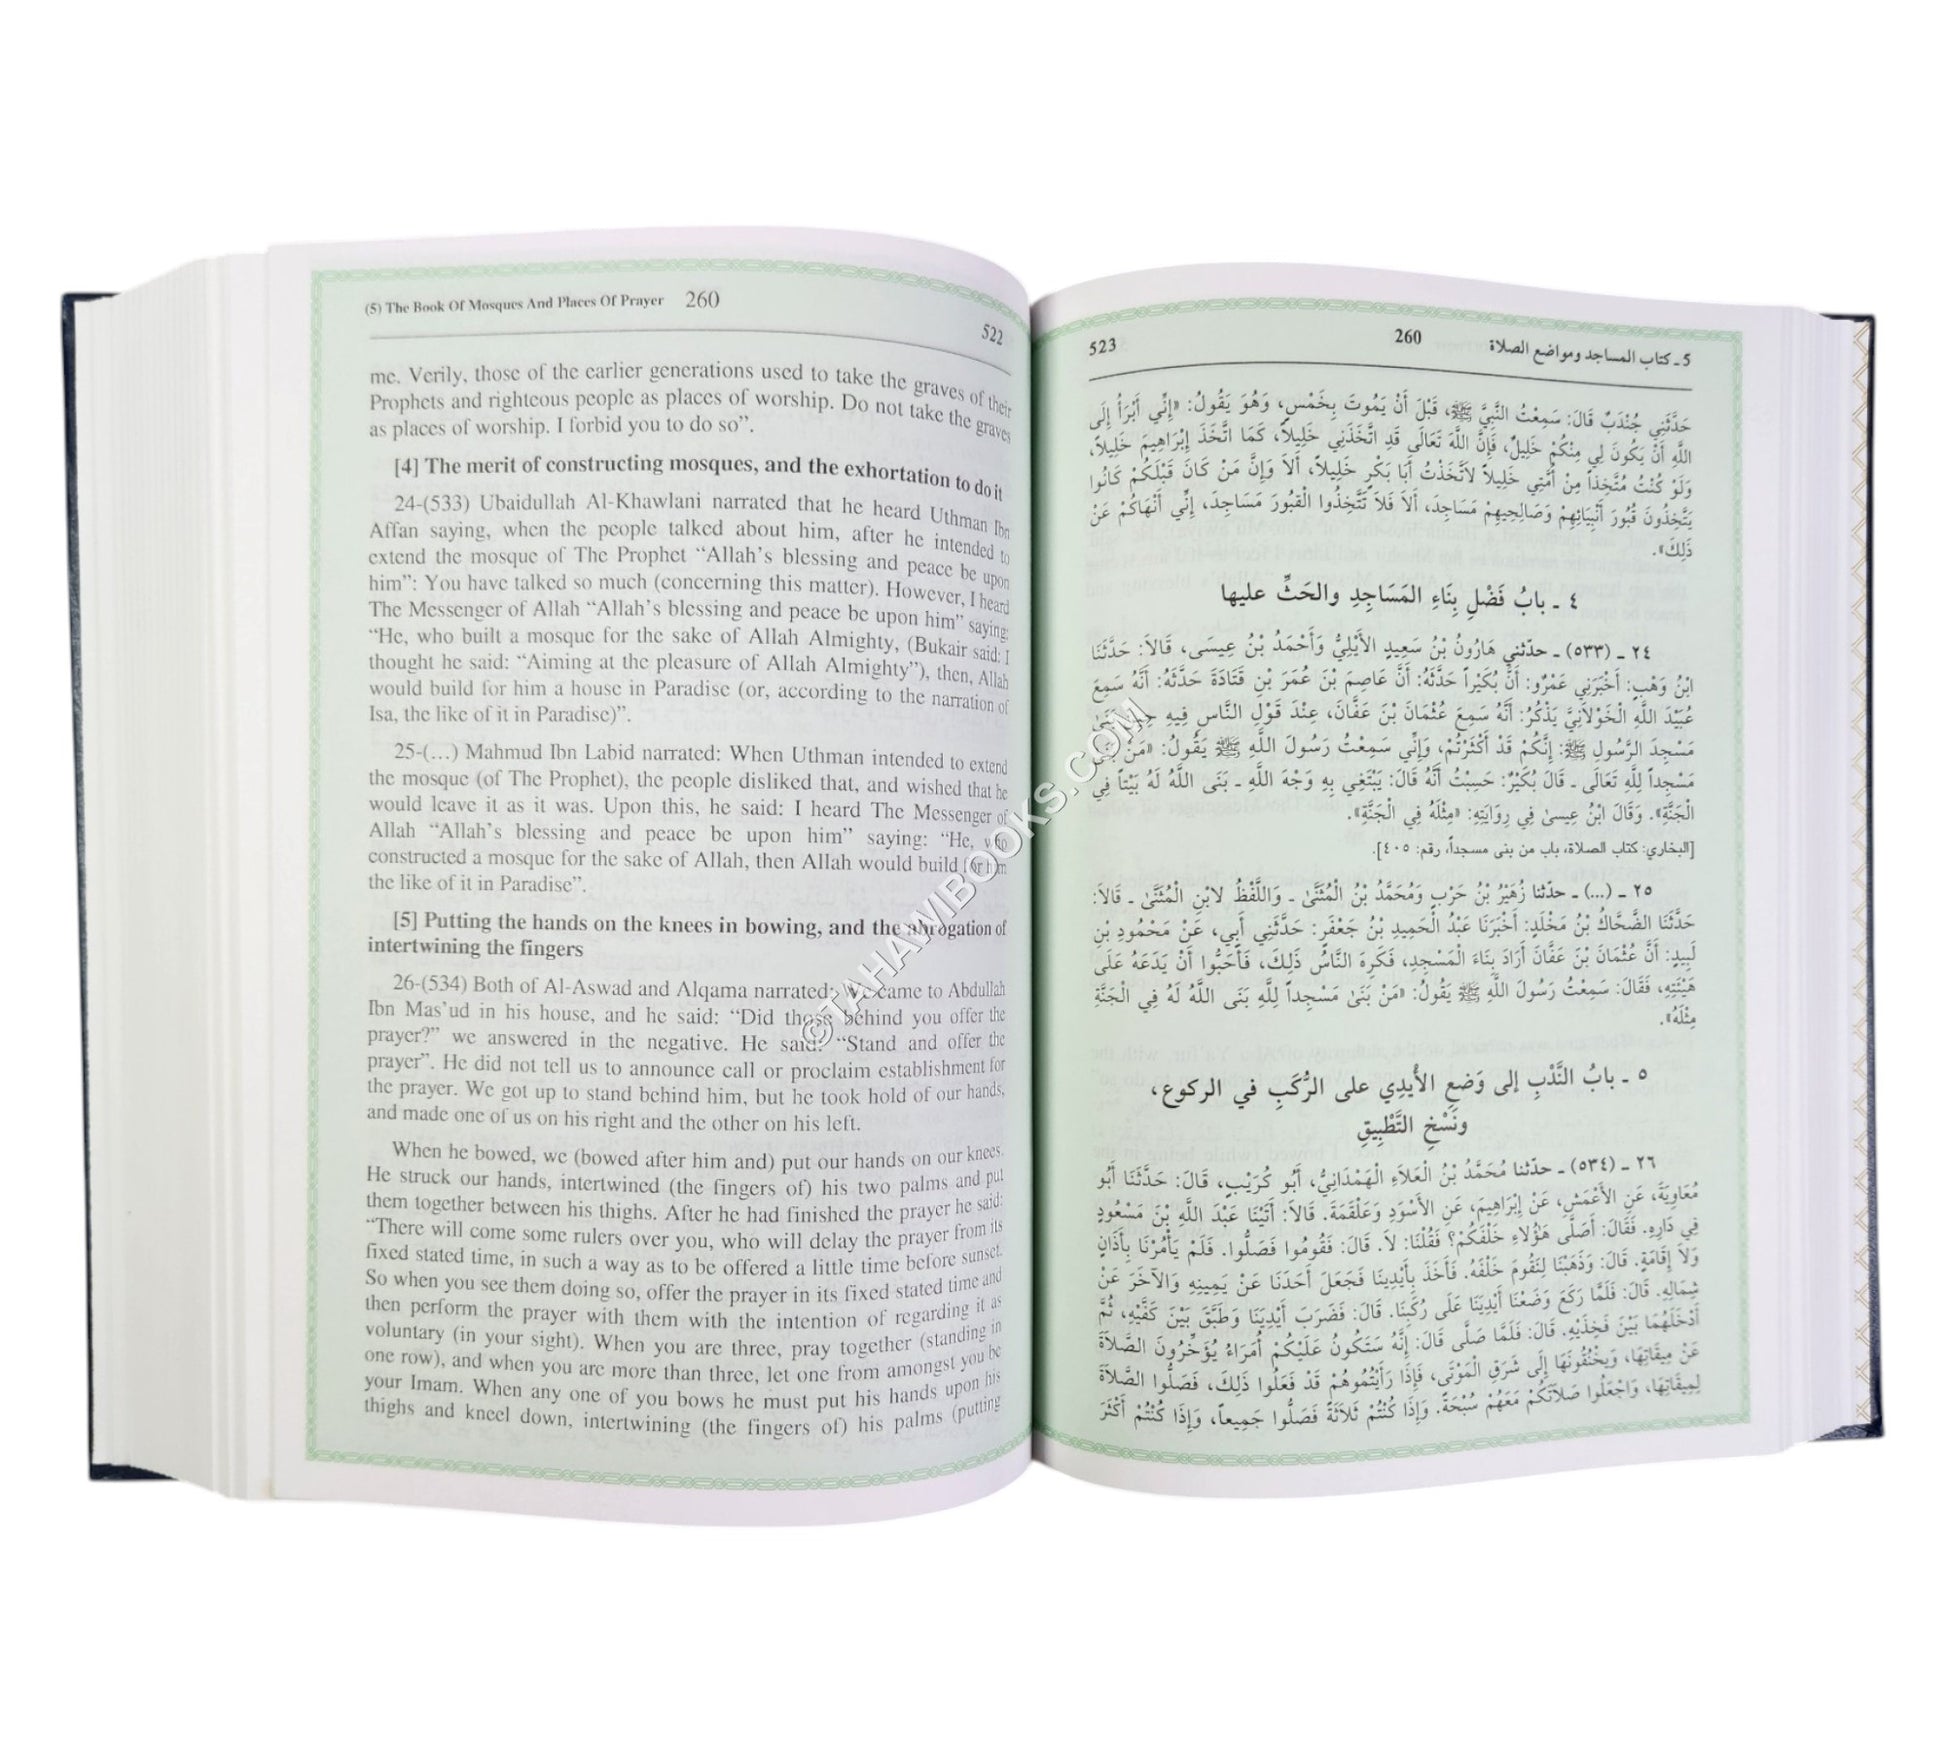 (5) The Book Of Mosques And Places Of Prayer 260
522
me. Verily, those of the earlier generations used to take the graves of their
Prophets and righteous people as places of worship. Do not take the graves
as places of worship. I forbid you to do so”.
[4] The merit of constructing mosques, and the exhortation to do it
24-(533) Ubaidullah Al-Khawlani narrated that he heard Uthman Ibn
Affan saying, when the people talked about him, after he intended to
extend the mosque of The Prophet “Allah’s blessing and peace be upon
him”: You have talked so much (concerning this matter). However, I heard
The Messenger of Allah “Allah’s blessing and peace be upon him” saying:
“He, who built a mosque for the sake of Allah Almighty, (Bukair said: I
thought he said: “Aiming at the pleasure of Allah Almighty”), then, Allah
would build for him a house in Paradise (or, according to the narration of
Isa, the like of it in Paradise)”.
25-(…) Mahmud Ibn Labid narrated: When Uthman intended to extend
the mosque (of The Prophet), the people disliked that, and wished that he
would leave it as it was. Upon this, he said: I heard The Messenger of
Allah “Allah’s blessing and peace be upon him” saying: “He, who
constructed a mosque for the sake of Allah, then Allah would build for him
the like of it in Paradise”.
[5] Putting the hands on the knees in bowing, and the abrogation of
intertwining the fingers
26-(534) Both of Al-Aswad and Alqama narrated: We came to Abdullah
Ibn Mas’ud in his house, and he said: “Did those behind you offer the
prayer?” we answered in the negative. He said: “Stand and offer the
prayer”. He did not tell us to announce call or proclaim establishment for
the prayer. We got up to stand behind him, but he took hold of our hands,
and made one of us on his right and the other on his left.
When he bowed, we (bowed after him and) put our hands on our knees.
He struck our hands, intertwined (the fingers of) his two palms and put
them together between his thighs. After he had finished the prayer he said:
“There will come some rulers over you, who will delay the prayer from its
fixed stated time, in such a way as to be offered a little time before sunset.
So when you see them doing so, offer the prayer in its fixed stated time and
then perform the prayer with them with the intention of regarding it as
voluntary (in your sight). When you are three, pray together (standing in
one row), and when you are more than three, let one from amongst you be
your Imam. When any one of you bows he must put his hands upon his
thighs and kneel down, intertwining (the fingers of) his palms (putting
5 ـ كتاب المساجد ومواضع الصلاة 260 523
حَدَّثَنِي جُنْدَبٌ قَالَ: سَمِعْتُ النَّبِيَّ ﷺ، قَبْلَ أَنْ يَمُوتَ بِخَمْسٍ، وَهُوَ يَقُولُ: «إِنِّي أَبْرَأُ إِلَى
اللَّهِ أَنْ يَكُونَ لِي مِنْكُمْ خَلِيلٌ، فَإِنَّ اللَّهَ تَعَالَى قَدِ اتَّخَذَنِي خَلِيلاً، كَمَا اتَّخَذَ إِبْرَاهِيمَ خَلِيلاً،
وَلَوْ كُنْتُ مُتَّخِذاً مِنْ أُمَّتِي خَلِيلاً لاَتَّخَذْتُ أَبَا بَكْرٍ خَلِيلاً، أَلاَ وَإِنَّ مَنْ كَانَ قَبْلَكُمْ كَانُوا
يَتَّخِذُونَ قُبُورَ أَنْبِيَائِهِمْ وَصَالِحِيهِمْ مَسَاجِدَ، أَلاَ فَلاَ تَتَّخِذُوا الْقُبُورَ مَسَاجِدَ، إِنِّي أَنْهَاكُمْ عَنْ
ذَلِكَ».
٤ ـ بابُ فَضْلِ بِنَاءِ المَسَاجِدِ والحَثِّ عليها
٢٤ ـ (٥٣٣) ـ حدّثني هَارُونُ بْنُ سَعِيدٍ الأَيْلِيُّ وَأَحْمَدُ بْنُ عِيسَى، قَالاَ: حَدَّثَنَا
ابْنُ وَهْبٍ: أَخْبَرَنِي عَمْرٌو: أَنَّ بُكَيْراً حَدَّثَهُ: أَنَّ عَاصِمَ بْنَ عُمَرَ بْنِ قَتَادَةَ حَدَّثَهُ: أَنَّهُ سَمِعَ
عُبَيْدَ اللَّهِ الْخَوْلاَنِيَّ يَذْكُرُ: أَنَّهُ سَمِعَ عُثْمَانَ بْنَ عَفَّانَ، عِنْدَ قَوْلِ النَّاسِ فِيهِ حِينَ بَنَىٰ
مَسْجِدَ الرَّسُولِ ﷺ: إِنَّكُمْ قَدْ أَكْثَرْتُمْ، وَإِنِّي سَمِعْتُ رَسُولَ اللَّهِ ﷺ يَقُولُ: «مَنْ بَنَىٰ
مَسْجِداً لِلَّهِ تَعَالَى ـ قَالَ بُكَيْرٌ: حَسِبْتُ أَنَّهُ قَالَ: يَبْتَغِي بِهِ وَجْهَ اللَّهِ ـ بَنَى اللَّهُ لَهُ بَيْتاً فِي
الْجَنَّةِ». وَقَالَ ابْنُ عِيسىٰ فِي رِوَايَتِهِ: «مِثْلَهُ فِي الْجَنَّةِ».
[البخاري: كتاب الصلاة، باب من بنى مسجداً، رقم: ٤٠٥].
٢٥ ـ (...) ـ حدّثنا زُهَيْرُ بْنُ حَرْبٍ وَمُحَمَّدُ بْنُ الْمُثَنَّىٰ ـ وَاللَّفْظُ لابْنِ الْمُثَنَّىٰ ـ قَالاَ:
حَدَّثَنَا الضَّحَّاكُ بْنُ مَخْلَدٍ: أَخْبَرَنَا عَبْدُ الْحَمِيدِ بْنُ جَعْفَرٍ: حَدَّثَنِي أَبِي، عَنْ مَحْمُودِ بْنِ
لَبِيدٍ: أَنَّ عُثْمَانَ بْنَ عَفَّانَ أَرَادَ بِنَاءَ الْمَسْجِدِ، فَكَرِهَ النَّاسُ ذَلِكَ، فَأَحَبُّوا أَنْ يَدَعَهُ عَلَى
هَيْئَتِهِ، فَقَالَ: سَمِعْتُ رَسُولَ اللَّهِ ﷺ يَقُولُ: «مَنْ بَنَىٰ مَسْجِداً لِلَّهِ بَنَى اللَّهُ لَهُ فِي الْجَنَّةِ
مِثْلَهُ».
٥ ـ بابُ النَّدْبِ إلى وَضعِ الأَيدِي على الرُّكَبِ في الركوع،
ونَسْخِ التَّطْبِيقِ
٢٦ ـ (٥٣٤) ـ حدّثنا مُحَمَّدُ بْنُ الْعَلاَءِ الْهَمْدَانِيُّ، أَبُو كُرَيْبٍ، قَالَ: حَدَّثَنَا أَبُو
مُعَاوِيَةَ، عَنِ الأَعْمَشِ، عَنْ إِبْرَاهِيمَ، عَنِ الأَسْوَدِ وَعَلْقَمَةَ. قَالاَ: أَتَيْنَا عَبْدَ اللَّهِ بْنَ مَسْعُودٍ
فِي دَارِهِ. فَقَالَ: أَصَلَّى هَؤُلاَءِ خَلْفَكُمْ؟ فَقُلْنَا: لاَ. قَالَ: فَقُومُوا فَصَلُّوا. فَلَمْ يَأْمُرْنَا بِأَذَانٍ
وَلاَ إِقَامَةٍ. قَالَ: وَذَهَبْنَا لِنَقُومَ خَلْفَهُ. فَأَخَذَ بِأَيْدِينَا فَجَعَلَ أَحَدَنَا عَنْ يَمِينِهِ وَالآخَرَ عَنْ
شِمَالِهِ. قَالَ: فَلَمَّا رَكَعَ وَضَعْنَا أَيْدِيَنَا عَلَى رُكَبِنَا. قَالَ: فَضَرَبَ أَيْدِيَنَا وَطَبَّقَ بَيْنَ كَفَّيْهِ، ثُمَّ
أَدْخَلَهُمَا بَيْنَ فَخِذَيْهِ. قَالَ: فَلَمَّا صَلَّى قَالَ: إِنَّهُ سَتَكُونُ عَلَيْكُمْ أُمَرَاءُ يُؤَخِّرُونَ الصَّلاَةَ
عَنْ مِيقَاتِهَا، وَيَخْنُقُونَهَا إِلَى شَرَقِ الْمَوْتَى، فَإِذَا رَأَيْتُمُوهُمْ قَدْ فَعَلُوا ذَلِكَ، فَصَلُّوا الصَّلاَةَ
لِمِيقَاتِهَا، وَاجْعَلُوا صَلاَتَكُمْ مَعَهُمْ سُبْحَةً. وَإِذَا كُنْتُمْ ثَلاَثَةً فَصَلُّوا جَمِيعاً، وَإِذَا كُنْتُمْ أَكْثَرَ
©TAHAWIBOOKS.COM